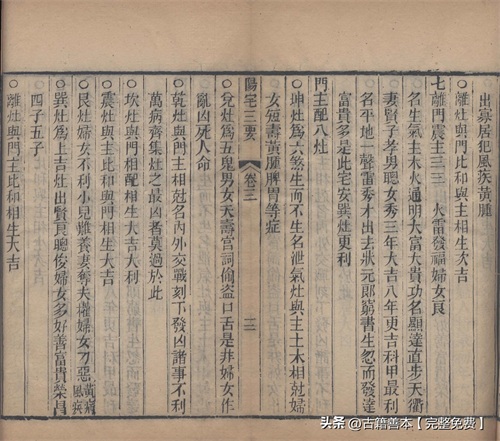 出寡居犯風疾黃腫
○離灶與門比和與主相生次吉
七離門震主三三一 火雷發福婦女良
名生氣主木火通明大富大貴功名顯達直步天衢
妻賢子孝男聰女秀三年大吉八年更吉科甲最利
名平地一聲雷秀才出去狀元郎窮書生忽而發達
富貴多是此宅安巽灶更利
門主配八灶
○坤灶爲六煞生而不生名泄氣灶與主土木相尅婦
女短壽黃腫脾胃等症
陽宅三要 卷三 二
○兌灶爲五鬼男女夭壽官詞偷盗口舌是非婦女作
亂凶死人命
○乾灶與門主相尅名內外交戰刻下發凶諸事不利
萬病齊集灶之最凶者莫過於此
○坎灶與門相配相生大吉大利
○震灶與門主比和相生大吉
○艮灶婦女不利小兒難養妻奪夫權婦女刀惡黃病風疾
○巽灶爲上吉灶出賢良聰俊婦女多好善富貴榮昌
四子五子
○離灶與門主比和相生大吉
头条 @古籍善本【完整免费】